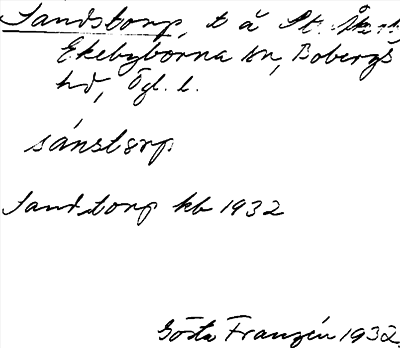 Sandstorp, t å St. Åkeby
Ekebyborna sn, Bobergs
hd, Ögl. l.
sánstorp
Sandstorp kb 1932
Gösta Franzén 1932.